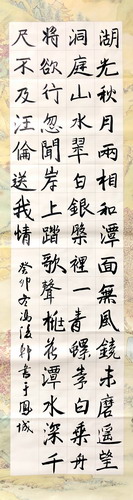 湖光秋月兩相和潭面無風鏡未磨遥望
洞庭山水翠白銀槃裡一青螺李白乘舟
將欲行忽聞岸上踏歌聲桃花潭水深千
尺不及汪倫送我情
癸卯冬馮書于鳳城